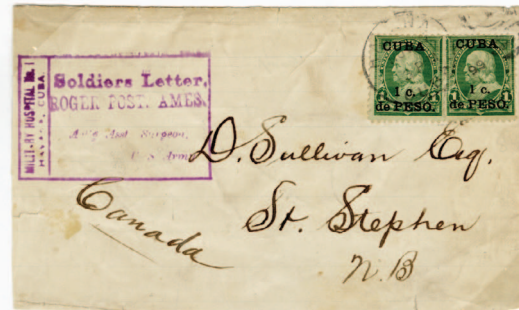 MILITARY HOSPITAL No. 1
HAVANA, CUBA
Soldiers Letter,
ROGER POST. AMES.
Act'g Asst Surgeon,
U.S. Army
CUBA
1 c.
de PESO.
CUBA
1 c.
de PESO.
D. Sullivan Esq.
St. Stephen
N.B
Canada